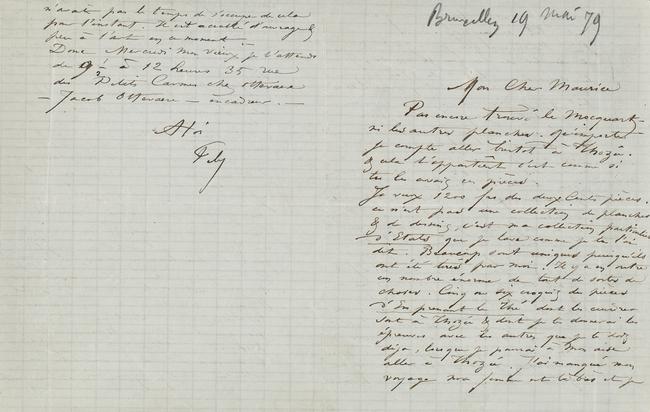 Bruxelles 19 mai 79
Mon Cher Maurice
Pas encore trouvé le Mocquart
ni les autres planches. Qu'importe
je compte aller bientôt à Thozée.
& cela t'appartient c'est comme si
tu les avais en pièces.
Je veux 1200 frs des deux Cents pièces.
ce n'est pas une collection de planches
& de dessins, c'est ma collection particulière
d'Etats que je lave comme je te l'ai
dit. Beaucoup sont uniques puisqu'ils
ont été tirés par moi. Il y a en outre
un nombre énorme de tout de sortes de
choses. Cinq ou six croquis des pièces
d'En prenant le Thé dont les cuivres
sont à Thozée & dont je te donnerai les
épreuves avec les autres que je te dois
déjà, lorsque je pourrai à mon aise
aller à Thozée. J'ai manqué mon
voyage ma femme est là bas et je
n'avait pas le temps de s'occuper de cela
pour l'instant. Il est accablé d'ouvrage &
peu à l'art en ce moment.
Donc Mercredi mon vieux je t'attends
de 9 à 12 heures 35 rue
des Petits Carmes chez
– Jacob – encadreur. –
A toi
Fély